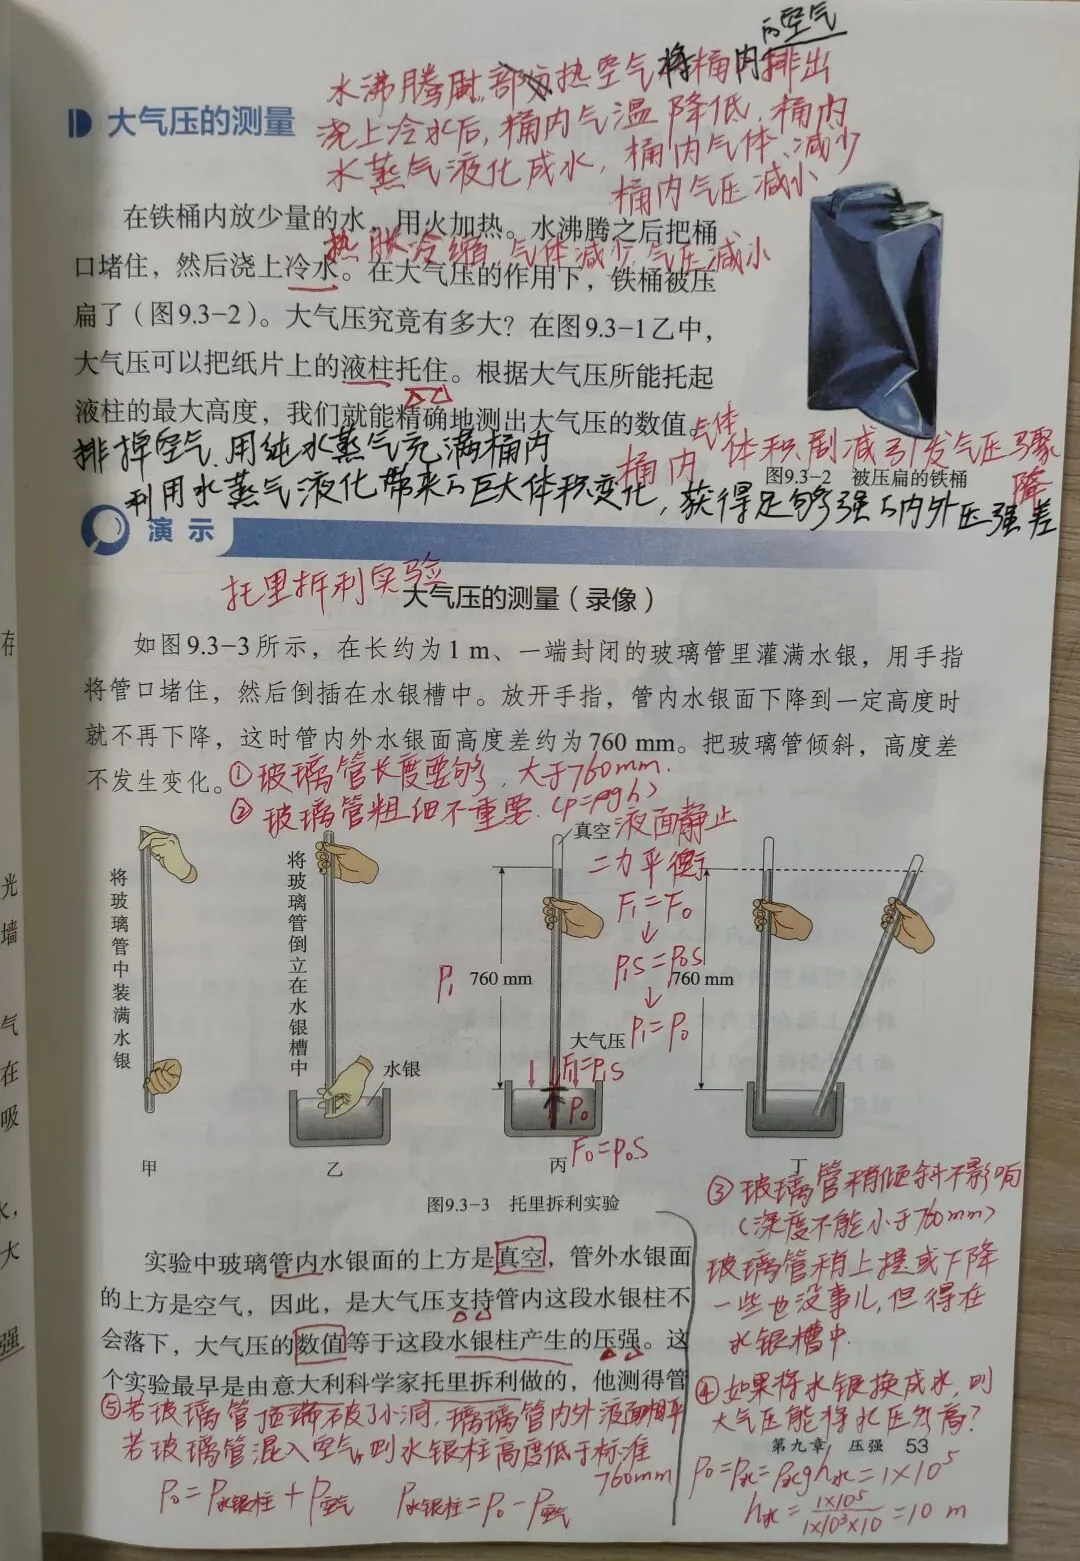 的空气
水沸腾时,部分热空气将桶内排出
大气压的测量
浇上冷水后,桶内气温降低,桶内
水蒸气液化成水,桶内气体减少
桶内气压减小
在铁桶内放少量的水,用火加热。水沸腾之后把桶
热胀冷缩,气体减少,气压减小
口堵住,然后浇上冷水。在大气压的作用下,铁桶被压
扁了(图9.3-2)。大气压究竟有多大?在图9.3-1乙中,
大气压可以把纸片上的液柱托住。根据大气压所能托起
液柱的最大高度,我们就能精确地测出大气压的数值。
气体
桶内 体积剧减引发气压骤降
图9.3-2 被压扁的铁桶
排掉空气,用纯水蒸气充满桶内
利用水蒸气液化带来的巨大体积变化,获得足够强的内外压强差
演示
托里拆利实验
大气压的测量(录像)
如图9.3-3所示,在长约为1 m、一端封闭的玻璃管里灌满水银,用手指
将管口堵住,然后倒插在水银槽中。放开手指,管内水银面下降到一定高度时
就不再下降,这时管内外水银面高度差约为760 mm。把玻璃管倾斜,高度差
不发生变化。
①玻璃管长度要够,大于760mm.
②玻璃管粗细不重要.(p=ρgh)
真空
液面静止
二力平衡
F₁=F₀
↓
p₁S=p₀S
↓
p₁=p₀
将玻璃管中装满水银
将玻璃管倒立在水银槽中
水银
p₁
760 mm
760 mm
大气压
F₁=p₁S
p₀
F₀=p₀S
甲
乙
丙
丁
图9.3-3 托里拆利实验
③玻璃管稍倾斜不影响
(深度不能小于760mm)
玻璃管稍上提或下降
一些也没事儿,但得在
水银槽中.
实验中玻璃管内水银面的上方是真空,管外水银面
的上方是空气,因此,是大气压支持管内这段水银柱不
会落下,大气压的数值等于这段水银柱产生的压强。这
个实验最早是由意大利科学家托里拆利做的,他测得管
⑤若玻璃管顶端破了小洞,玻璃管内外液面相平
若玻璃管混入空气,则水银柱高度低于标准
760mm
p₀=p水银柱+p空气 p水银柱=p₀-p空气
④如果将水银换成水,则
大气压能将水压多高?
第九章 压强 53
p₀=p水=ρ水gh水=1×10⁵
h水=1×10⁵/1×10³×10=10 m
存
光
墙
气
在
吸
水,
大
强